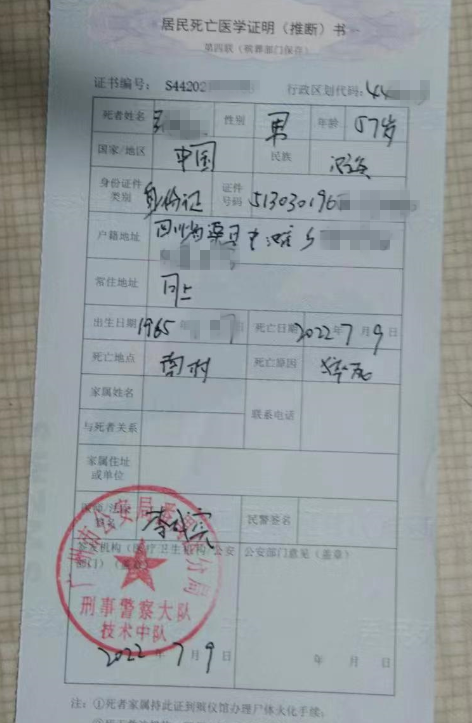 居民死亡医学证明（推断）书
第四联（殡葬部门保存）
证书编号： S44202 行政区划代码：44
死者姓名 性别 男 年龄 57岁
国家/地区 中国 民族 汉族
身份证件类别 身份证 证件号码 513030196
户籍地址 四川 渠县 乡
常住地址 同上
出生日期 1965 死亡日期 2022年7月9日
死亡地点 南村 死亡原因 猝死
家属姓名 联系电话
与死者关系
家属住址或单位
民警签名
公安部门意见（盖章）
广州市公安局 分局
刑事警察大队
技术中队
2022年7月9日 年 月 日
注：①死者家属持此证到殡仪馆办理尸体火化手续；